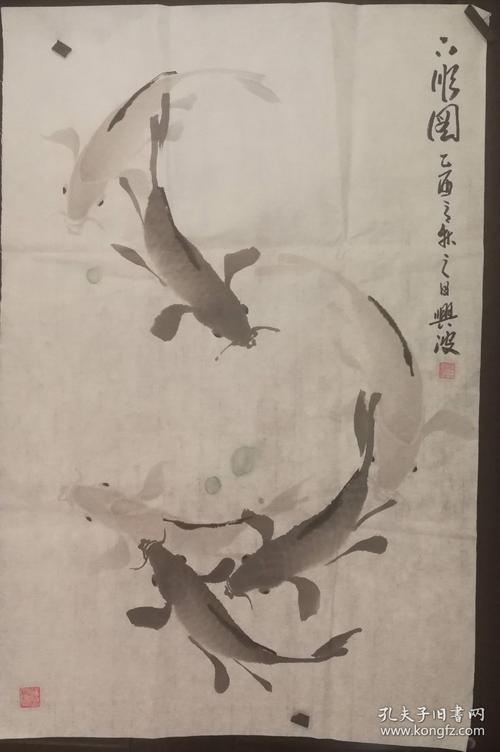 六顺图
乙酉之秋之日興波
孔夫子旧书网
www.kongfz.com